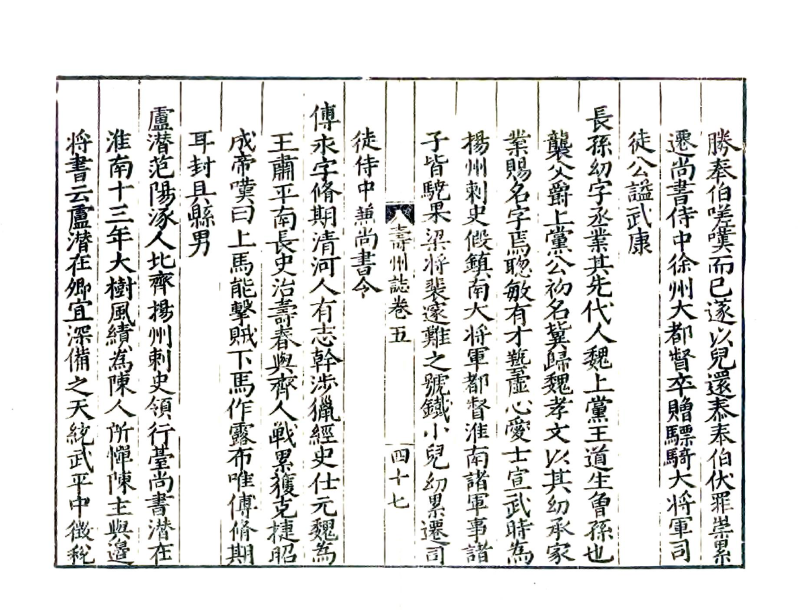 勝奉伯嗟嘆而已遂以兒還泰奉伯伏罪崇累
遷尚書侍中徐州大都督卒贈驃騎大將軍司
徒公謚武康
長孫幼字承業其先代人魏上黨王道生曾孫也
襲父爵上黨公初名冀歸魏孝文以其幼承家
業賜名字焉聰敏有才藝虛心愛士宣武時為
揚州刺史假鎮南大將軍都督淮南諸軍事諸
子皆驍果梁將裴邃難之號鐵小兒幼累遷司
徒侍中兼尚書令
壽州誌卷五
四十七
傅永字脩期清河人有志幹涉獵經史仕元魏為
王肅平南長史治壽春與齊人戰累獲克捷昭
成帝嘆曰上馬能擊賊下馬作露布唯傅脩期
耳封貝縣男
盧潛范陽涿人北齊揚州刺史領行臺尚書潛在
淮南十三年大樹風績為陳人所憚陳主與邊
將書云盧潛在鄉宜深備之天統武平中徵稅